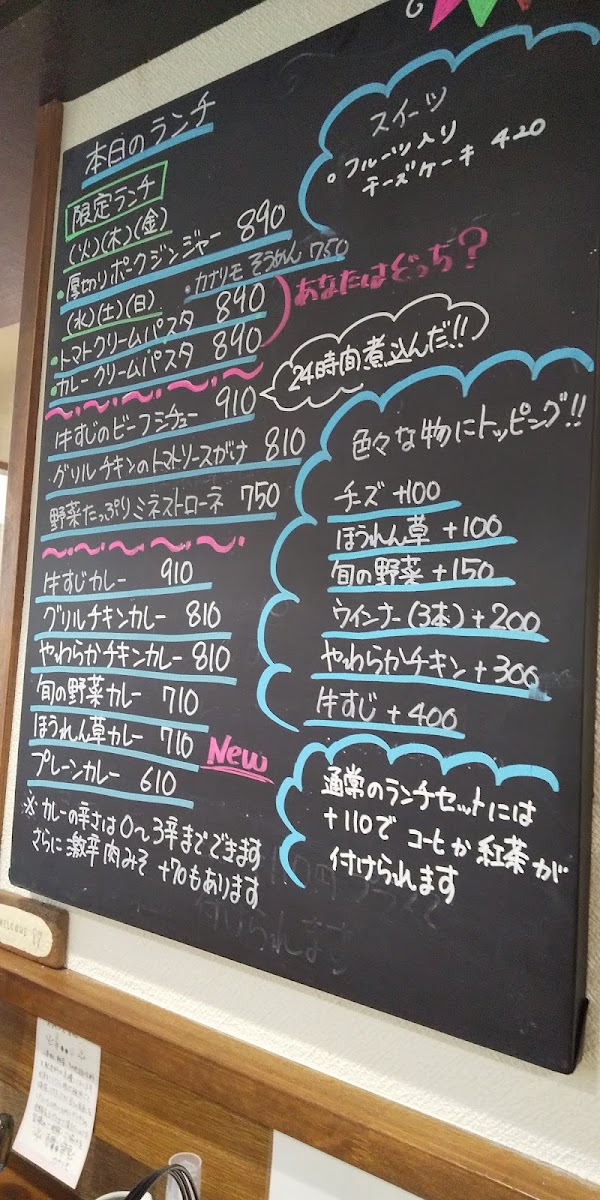 本日のランチ
限定ランチ
(火)(木)(金)
・厚切りポークジンジャー 890
・カナリモ そうめん 750
(水)(土)(日)
・トマトクリームパスタ 890
・カレークリームパスタ 890
あなたはどっち?
牛すじのビーフシチュー 910
24時間煮込んだ!!
グリルチキンのトマトソースがけ 810
野菜たっぷりミネストローネ 750
牛すじカレー 910
グリルチキンカレー 810
やわらかチキンカレー 810
旬の野菜カレー 710
ほうれん草カレー 710
New
プレーンカレー 610
※ カレーの辛さは0〜3辛までできます
さらに激辛肉みそ +70もあります
スイーツ
○フルーツ入り
チーズケーキ 420
色々な物にトッピング!!
チーズ +100
ほうれん草 +100
旬の野菜 +150
ウインナー(3本)+200
やわらかチキン+300
牛すじ +400
通常のランチセットには
+110で コーヒか紅茶が
付けられます